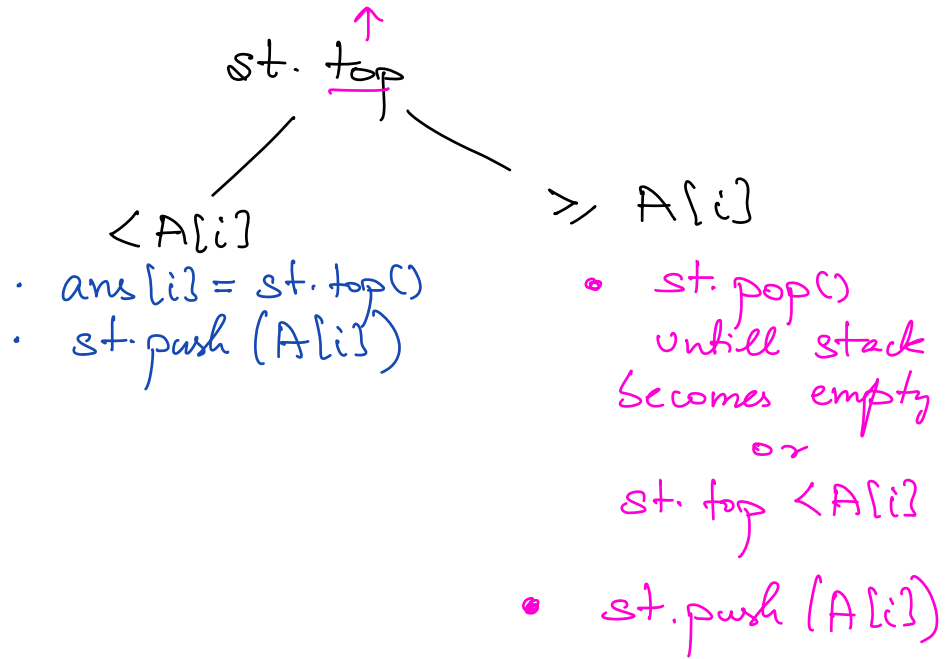 st. top
< A[i]
• ans[i] = st.top()
• st.push (A[i])
>= A[i]
• st.pop()
untill stack
becomes empty
or
st.top < A[i]
• st.push (A[i])